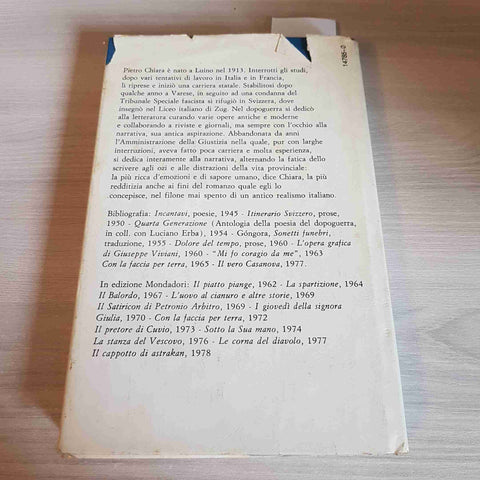 14785-0
Pietro Chiara è nato a Luino nel 1913. Interrotti gli studi,
dopo vari tentativi di lavoro in Italia e in Francia,
li riprese e iniziò una carriera statale. Stabilitosi dopo
qualche anno a Varese, in seguito ad una condanna del
Tribunale Speciale fascista si rifugiò in Svizzera, dove
insegnò nel Liceo italiano di Zug. Nel dopoguerra si dedicò
alla letteratura curando varie opere antiche e moderne
e collaborando a riviste e giornali, ma sempre con l'occhio alla
narrativa, sua antica aspirazione. Abbandonata da anni
l'Amministrazione della Giustizia nella quale, pur con larghe
interruzioni, aveva fatto poca carriera e molta esperienza,
si dedica interamente alla narrativa, alternando la fatica dello
scrivere agli ozi e alle distrazioni della vita provinciale:
la più ricca d'emozioni e di sapore umano, dice Chiara, la più
redditizia anche ai fini del romanzo quale egli lo
concepisce, nel filone mai spento di un antico realismo italiano.
Bibliografia: Incantavi, poesie, 1945 - Itinerario Svizzero, prose,
1950 - Quarta Generazione (Antologia della poesia del dopoguerra,
in coll. con Luciano Erba), 1954 - Góngora, Sonetti funebri,
traduzione, 1955 - Dolore del tempo, prose, 1960 - L'opera grafica
di Giuseppe Viviani, 1960 - "Mi fo coragio da me", 1963
Con la faccia per terra, 1965 - Il vero Casanova, 1977.
In edizione Mondadori: Il piatto piange, 1962 - La spartizione, 1964
Il Balordo, 1967 - L'uovo al cianuro e altre storie, 1969
Il Satiricon di Petronio Arbitro, 1969 - I giovedì della signora
Giulia, 1970 - Con la faccia per terra, 1972
Il pretore di Cuvio, 1973 - Sotto la Sua mano, 1974
La stanza del Vescovo, 1976 - Le corna del diavolo, 1977
Il cappotto di astrakan, 1978